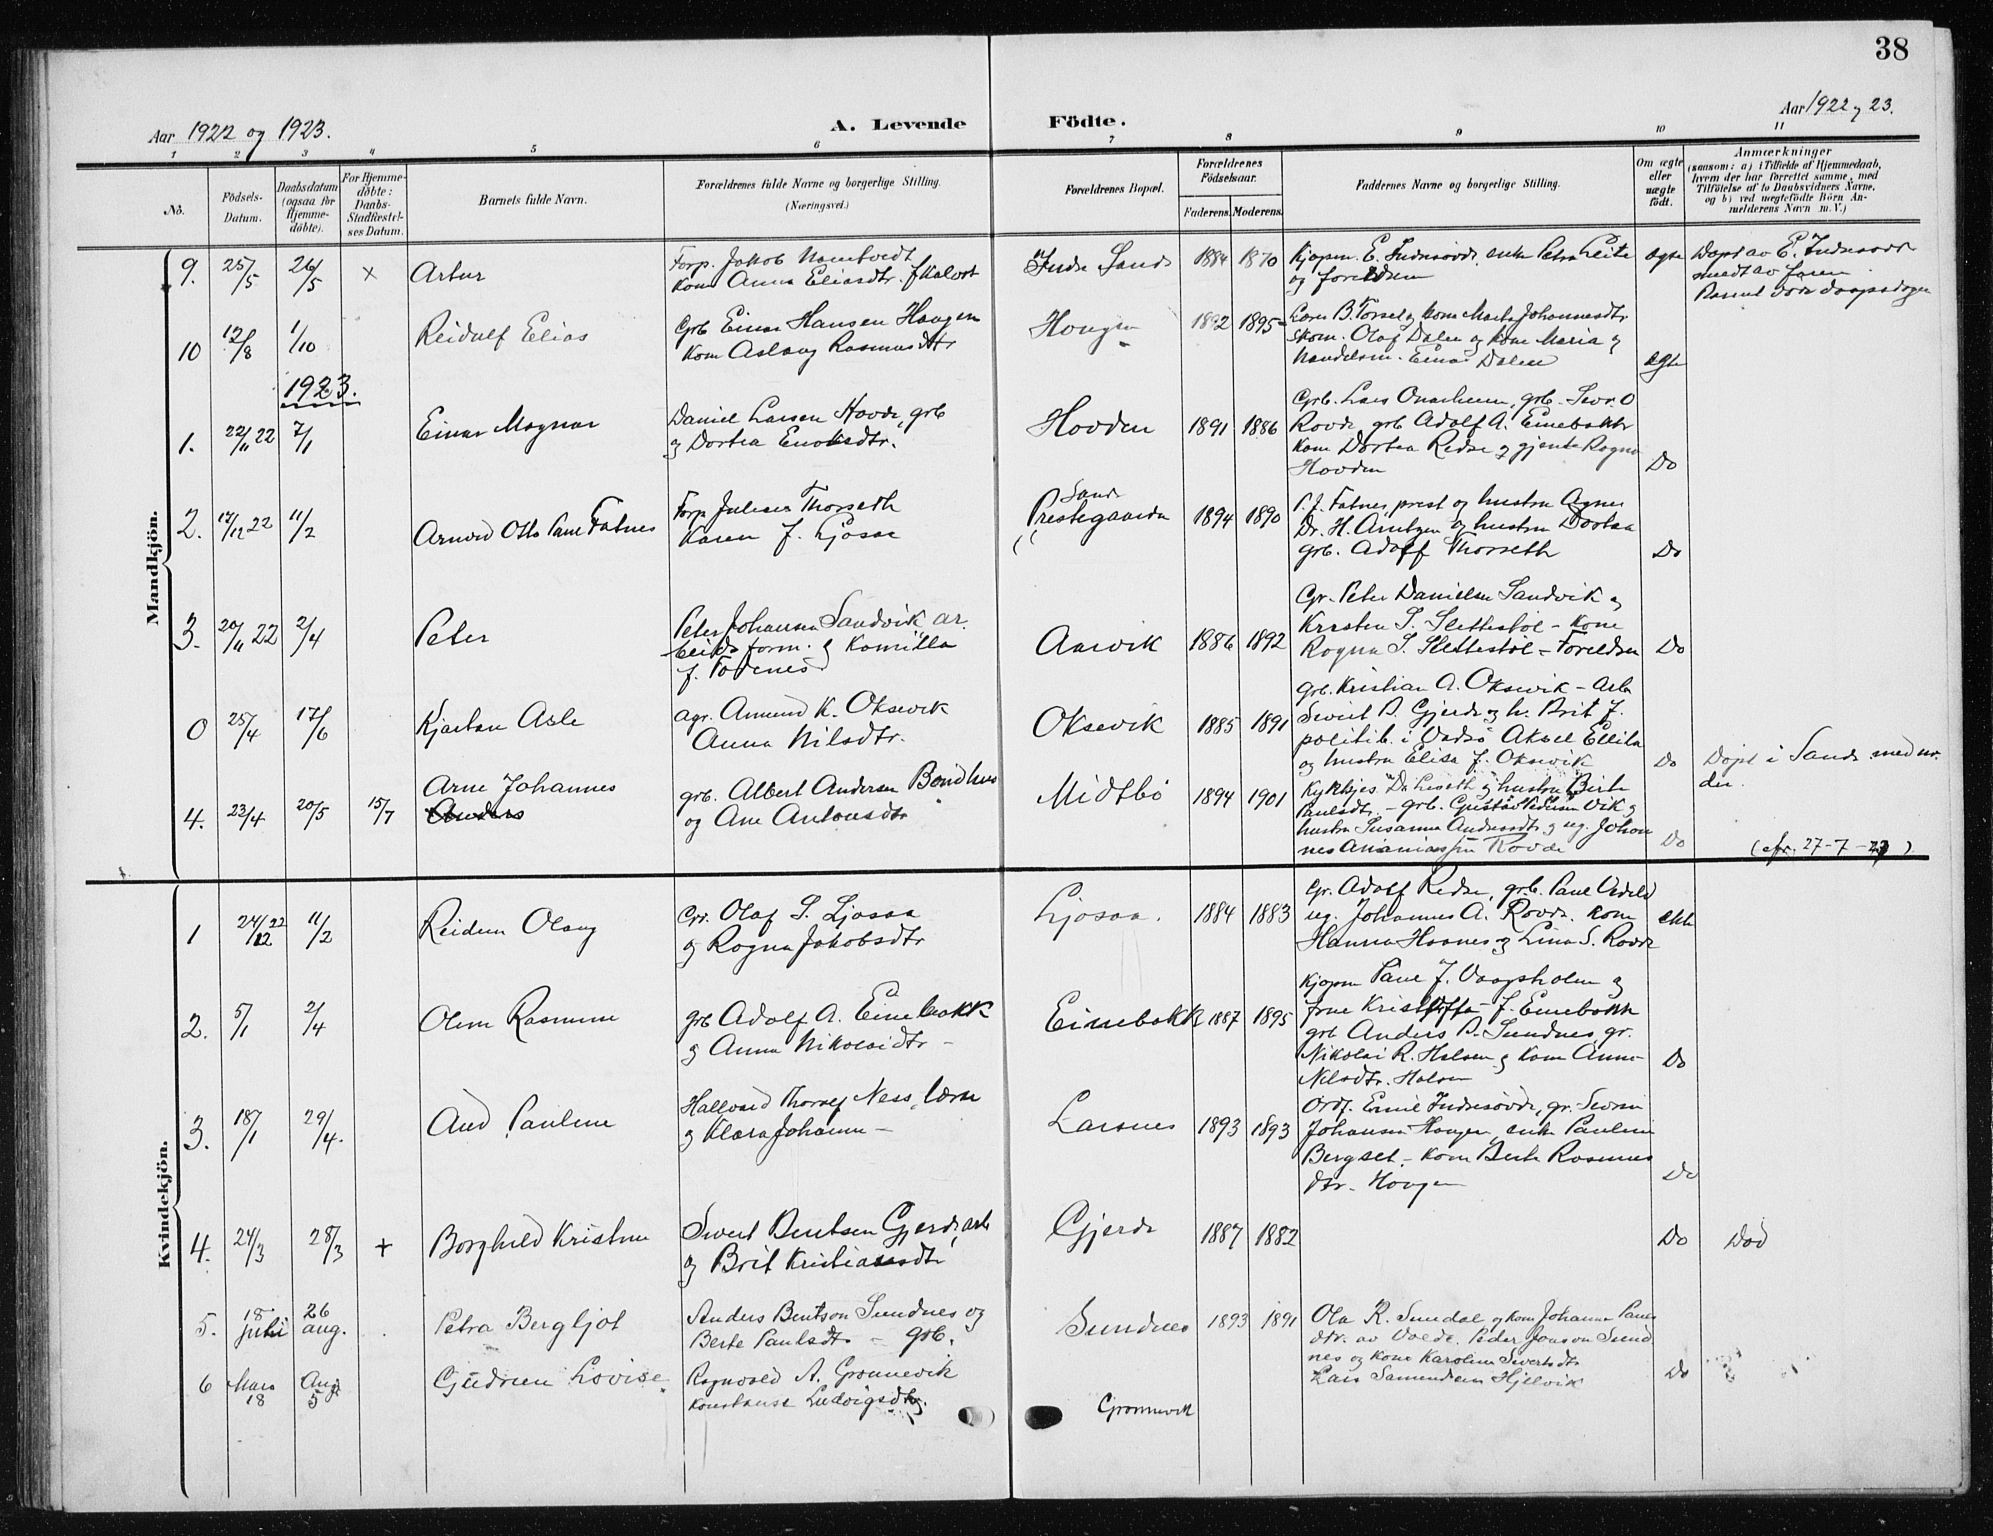 38
Aar 1922 og 1923.
A. Levende Födte.
Aar 1922 og 23.
1 2 3 4 5 6 7 8 9 10 11
No.
Födsels-
Datum.
Daabsdatum
(ogsaa for
Hjemme-
døbte).
For Hjemme-
døbte:
Daabs-
Stadfæstel-
ses Datum.
Barnets fulde Navn.
Forældrenes fulde Navne og borgerlige Stilling.
(Næringsvei.)
Forældrenes Bopæl.
Forældrenes
Födselsaar.
Faderens. Moderens.
Faddernes Navne og borgerlige Stilling.
Om ægte
eller
uægte
født.
Anmærkninger
(saasom: a) i Tilfælde af Hjemmedaab,
hvem der har forrettet samme, med
Tilföielse af to Daabsvidners Navne,
og b) ved uægtefödte Börn An-
melderens Navn m. V.)
Mandkjön.
9. 25/5 26/5 × Artur
Forp. Jakob
Kone Anna Eliasdtr.
Indre Sande 1884 1870
Kjøpm. E. Indresøvde, enke Petra Leite
og foreldren
ægte
Døpt av E. Indresøvde
10 12/8 1/10 Reidulf Elias
Grb Einar Hansen Haugen
Kone Aslaug Rasmusdtr
Haugen 1895
Lærer B. Torset og kone Marta Johannesdtr
Skom. Olaf Dalen og kone Maria og
Handelsm. Einar Dalen
ægte
1923.
1. 22/11 22 7/1 Einar Magnar
Daniel Larsen Hovde, grb
og Dortea Enoksdtr.
Hovden 1891 1886
Grb. Lars Onarheim, grb. Sevr. O
Rovde, grb Adolf A. Einebakk
kone Dortea Redse og gjente Ragna
Hovden
Do
2. 12/12 22 11/2 Arnord Otto Paul Fatnes
Forp Julius Thorseth
Karen f. Ljosaa
Sande
Prestegaarden 1894 1890
P. J. Fatnes, prest og hustru Agnes
Dr. H. Arntzen og hustru Dortea
grb. Adolf Thorseth
Do
3. 20/11 22 2/4 Peter
Peter Johansen Sandvik ar.
beidsform. og Kamilla
Aarvik 1886 1892
Gr. Peter Danielsen Sandvik og
Kristen S. Slettestøl – kone
Ragna S. Slettestøl – Foreldren
Do
0 25/4 17/6 Kjartan Asle
agr. Amund K. Oksevik
Anna Nilsdtr.
Oksevik 1885 1891
Grb. Kristian A. Oksevik – Arb
Sivert B. Gjerde og h. Brit f.
politib. i Vadsö Aksel
og hustru Elisa f. Oksevik
Do
Døpt i Sande med mo-
der.
4. 23/4 20/5 15/7 Arne Johannes
grb. Albert Andersen Bondhus
og Ane Antonsdtr
Midtbö 1894 1901
og hustru Birte
Paulsdtr, – grb. Gustav Pedersen Vik og
hustru Susanna Andreasdtr og ug. Johan
nes Ananiassen Rovde
Do
(cfr. 27-7-23)
Kvindekjön.
1 24/12 22 11/2 Reidun Olaug
Gr. Olaf S. Ljosaa
og Ragna Jakobsdtr
Ljosaa. 1884 1883
Gr. Adolf Redse, grb. Paul
ug. Johannes A. Rovde. kone
Hanna Haanes og Lina S. Rovde
ekte
2. 5/1 2/4 Oline Rasmine
grb Adolf A. Einebakk
og Anna Nikolaidtr –
Einebakk 1887 1895
Kjøpm Paul J. Vaagsholm og
frue Kristoffa f. Einebakk
grb Anders B. Sundnes gr.
Nikolai R. Halsen og kone Anne
Nilsdtr. Halsen
Do
3. 18/1 29/4. Aud Pauline
Hallvard Thoralf Ness, lærer
og Klara Johanne –
Larsnes 1893 1893
Ordf. Emil Indresövde, gr. Severin
Johansen Haugen, enke Pauline
Bergset – kone Berte Rasmus
dtr. Haugen
Do
4. 24/3 28/3 + Borghild Kristine
Sivert Bentsen Gjerde, arb
og Brit Kristiansdtr
Gjerde 1887 1882
Do Död
5. 18 juli 26 aug. Petra Bergljot
Anders Bentson Sundnes og
Berte Paulsdtr – grb.
Sundnes 1893 1891
Ola R. Sundal og kone Johanne Pauls
dtr. av Volda. Peder Jonson Sund
nes og kone Karoline Sivertsdtr
Lars Samundsen Hjelvik
Do
6 Mars 18 Aug 5 Gudrun Lovise
Ragnvald A. Grønnevik
Konstanse Ludvigsdtr.
Grønnevik